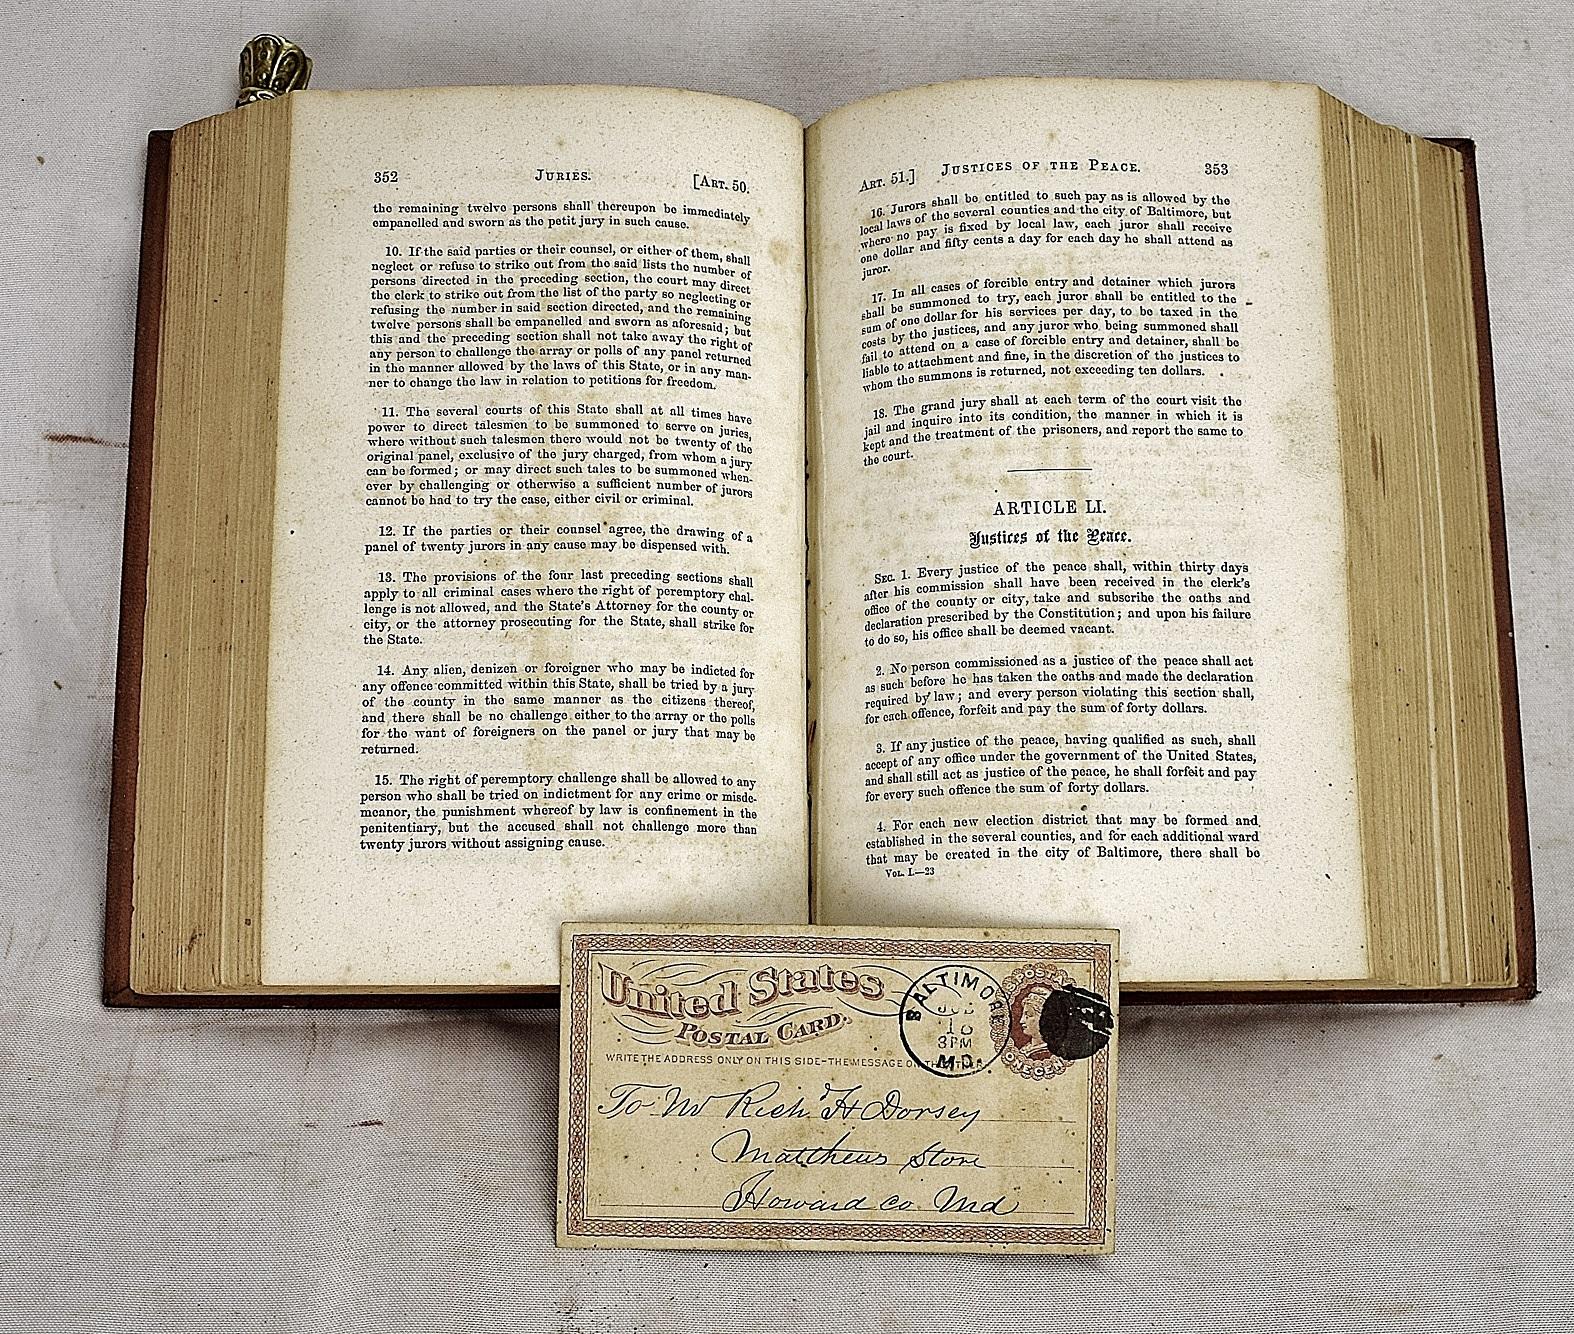 352 JURIES. [ART. 50.
the remaining twelve persons shall thereupon be immediately
empanelled and sworn as the petit jury in such cause.
10. If the said parties or their counsel, or either of them, shall
neglect or refuse to strike out from the said lists the number of
persons directed in the preceding section, the court may direct
the clerk to strike out from the list of the party so neglecting or
refusing the number in said section directed, and the remaining
twelve persons shall be empanelled and sworn as aforesaid; but
this and the preceding section shall not take away the right of
any person to challenge the array or polls of any panel returned
in the manner allowed by the laws of this State, or in any man-
ner to change the law in relation to petitions for freedom.
11. The several courts of this State shall at all times have
power to direct talesmen to be summoned to serve on juries,
where without such talesmen there would not be twenty of the
original panel, exclusive of the jury charged, from whom a jury
can be formed; or may direct such tales to be summoned when-
ever by challenging or otherwise a sufficient number of jurors
cannot be had to try the case, either civil or criminal.
12. If the parties or their counsel agree, the drawing of a
panel of twenty jurors in any cause may be dispensed with.
13. The provisions of the four last preceding sections shall
apply to all criminal cases where the right of peremptory chal-
lenge is not allowed, and the State's Attorney for the county or
city, or the attorney prosecuting for the State, shall strike for
the State.
14. Any alien, denizen or foreigner who may be indicted for
any offence committed within this State, shall be tried by a jury
of the county in the same manner as the citizens thereof,
and there shall be no challenge either to the array or the polls
for the want of foreigners on the panel or jury that may be
returned.
15. The right of peremptory challenge shall be allowed to any
person who shall be tried on indictment for any crime or misde-
meanor, the punishment whereof by law is confinement in the
penitentiary, but the accused shall not challenge more than
twenty jurors without assigning cause.
ART. 51.] JUSTICES OF THE PEACE. 353
16. Jurors shall be entitled to such pay as is allowed by the
local laws of the several counties and the city of Baltimore, but
where no pay is fixed by local law, each juror shall receive
one dollar and fifty cents a day for each day he shall attend as
juror.
17. In all cases of forcible entry and detainer which jurors
shall be summoned to try, each juror shall be entitled to the
sum of one dollar for his services per day, to be taxed in the
costs by the justices, and any juror who being summoned shall
fail to attend on a case of forcible entry and detainer, shall be
liable to attachment and fine, in the discretion of the justices to
whom the summons is returned, not exceeding ten dollars.
18. The grand jury shall at each term of the court visit the
jail and inquire into its condition, the manner in which it is
kept and the treatment of the prisoners, and report the same to
the court.
ARTICLE LI.
Justices of the Peace.
SEC. 1. Every justice of the peace shall, within thirty days
after his commission shall have been received in the clerk's
office of the county or city, take and subscribe the oaths and
declaration prescribed by the Constitution; and upon his failure
to do so, his office shall be deemed vacant.
2. No person commissioned as a justice of the peace shall act
as such before he has taken the oaths and made the declaration
required by law; and every person violating this section shall,
for each offence, forfeit and pay the sum of forty dollars.
3. If any justice of the peace, having qualified as such, shall
accept of any office under the government of the United States,
and shall still act as justice of the peace, he shall forfeit and pay
for every such offence the sum of forty dollars.
4. For each new election district that may be formed and
established in the several counties, and for each additional ward
that may be created in the city of Baltimore, there shall be
VOL. I.—23
United States
POSTAL CARD.
WRITE THE ADDRESS ONLY ON THIS SIDE-THE MESSAGE ON THE OTHER
BALTIMORE
3PM
MD.
POSTAGE
ONE CENT
To Mr Richd H Dorsey
Matthews Store
Howard co Md